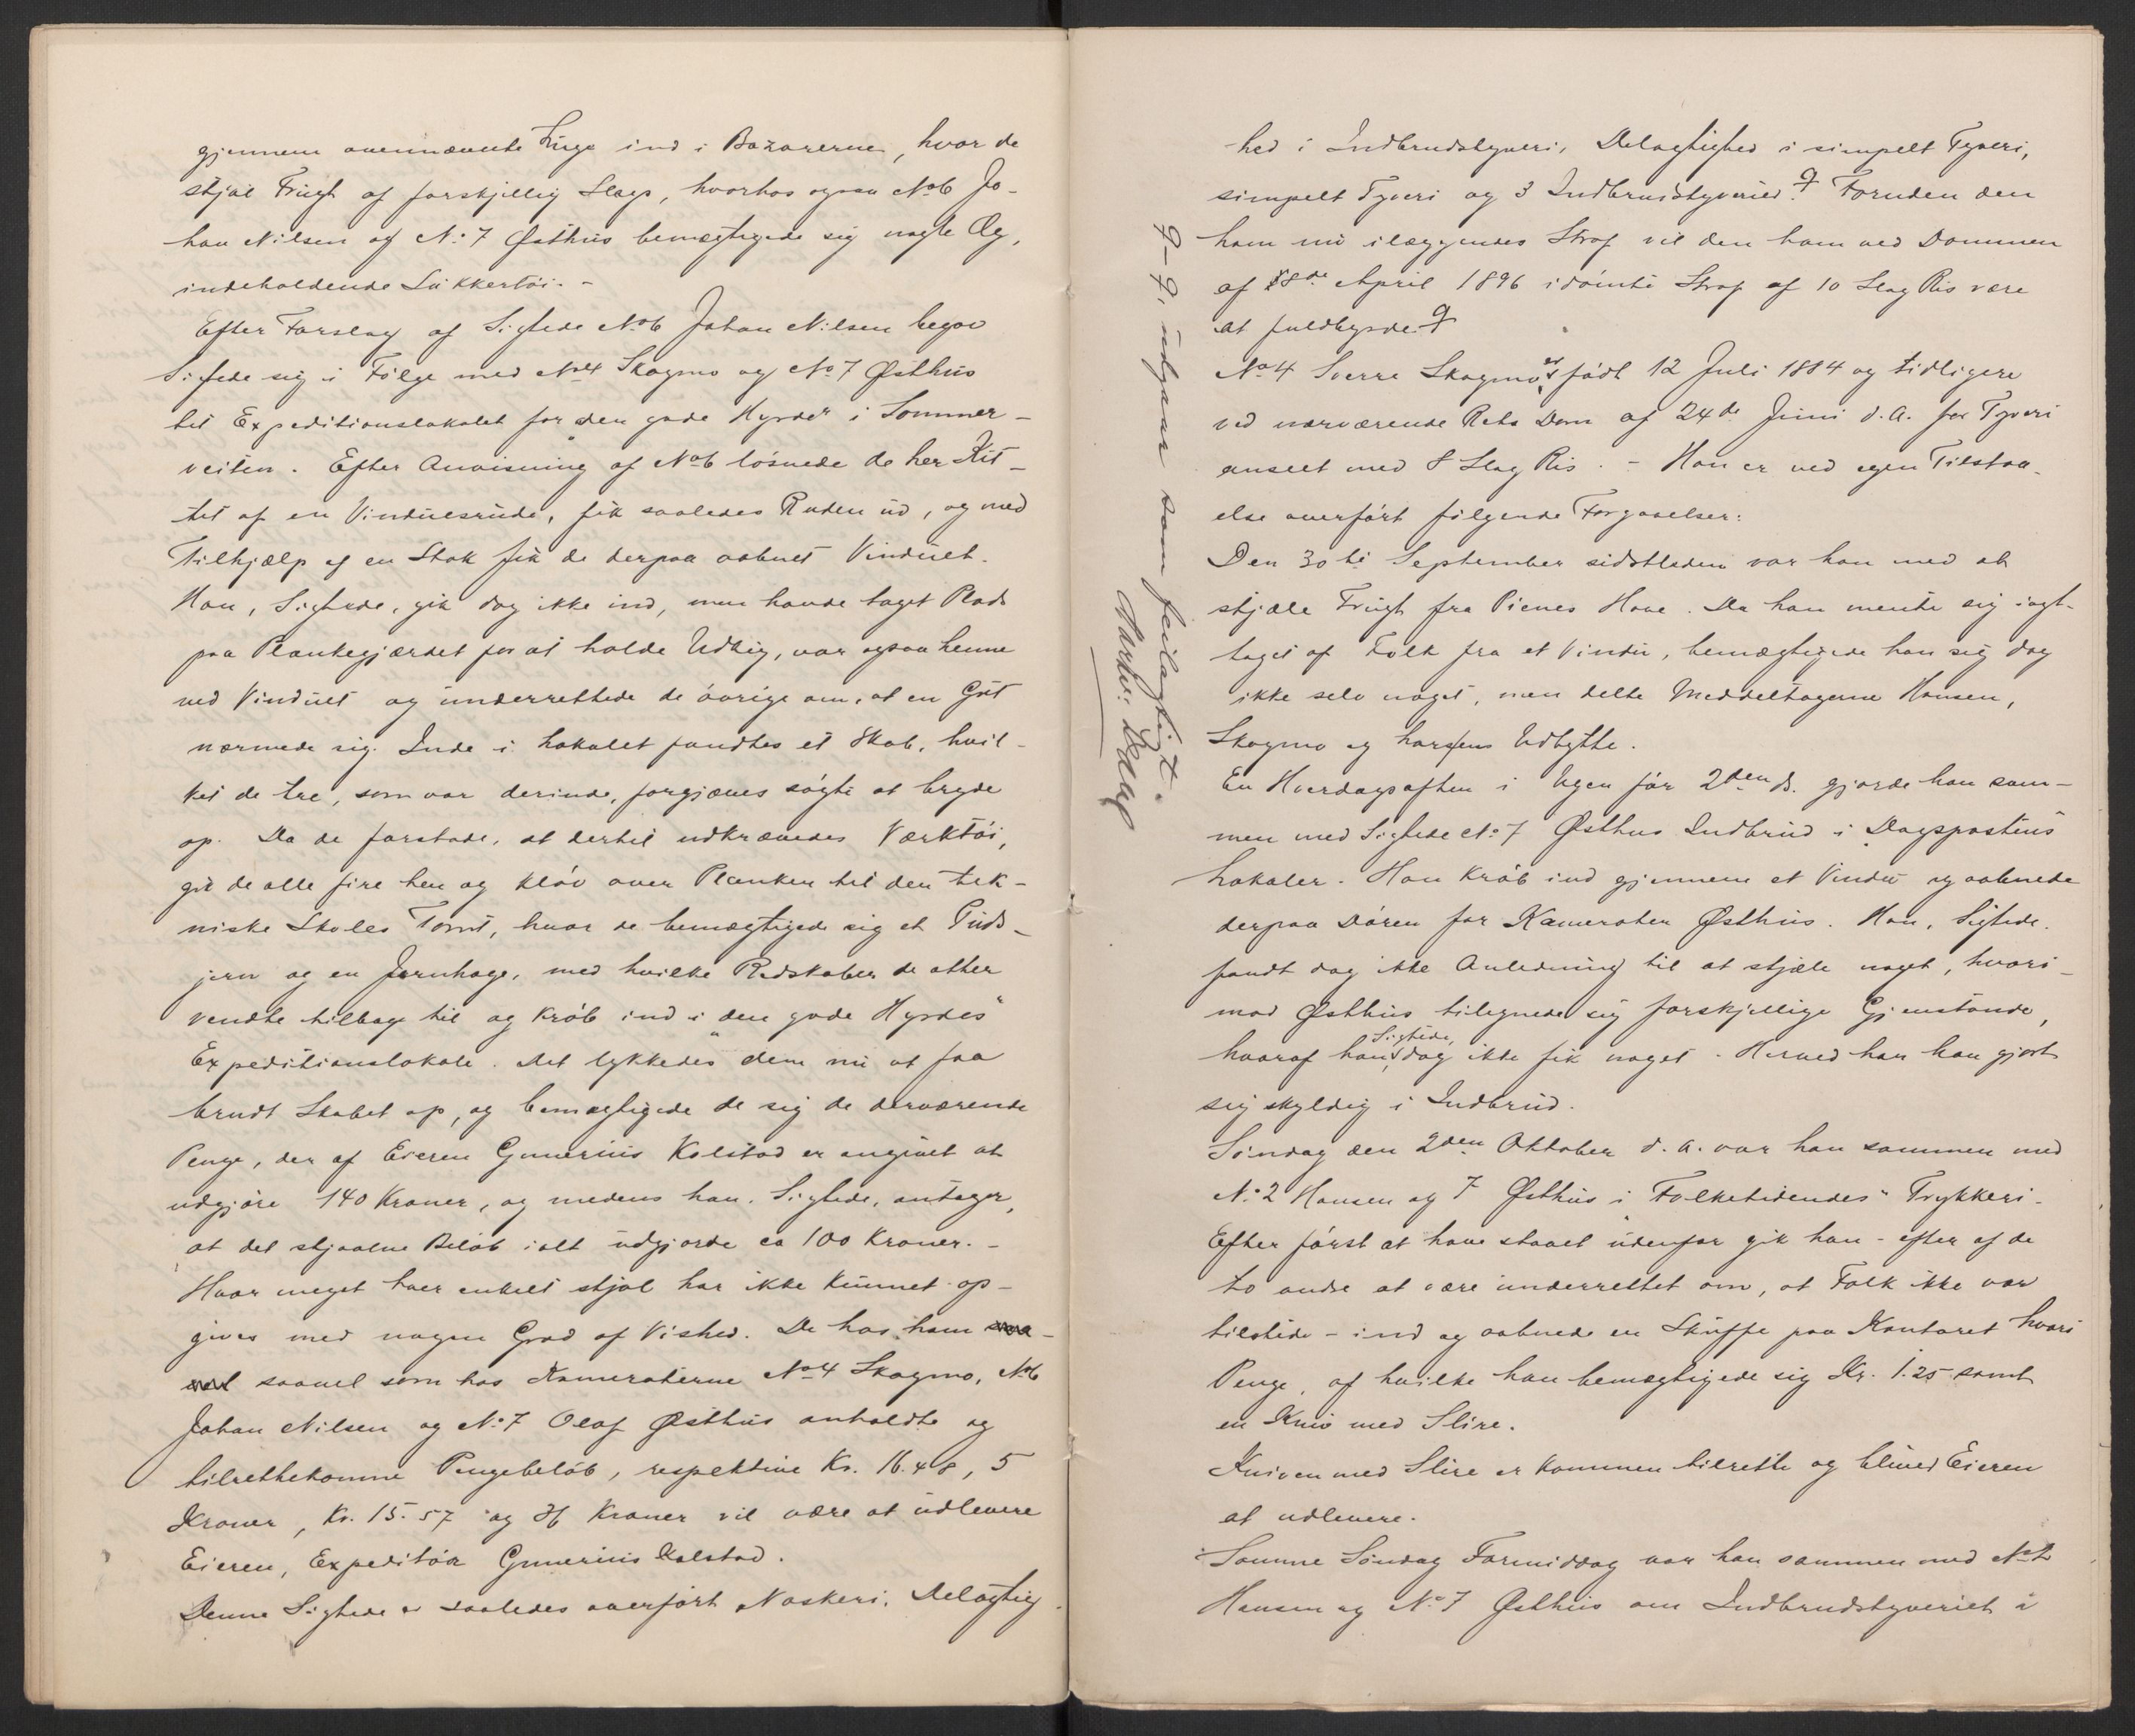 gjennem ovennævnte Luge ind i Bazarerne, hvor de
stjal Frugt af forskjellig Slags, hvorhos ogsaa No 6 Jo-
han Nilsen og No 7 Østhus bemægtigede sig nogle Æg,
indeholdende Sukkertöi. -
Efter Forslag af Sigtede No 6 Johan Nilsen begav
Sigtede sig i Fölge med No 4 Skogmo og No 7 Østhus
til Expeditionslokalet for „den gode Hyrde" i Sommer-
veiten. Efter Anvisning af No 6 lösnede de her Kit-
tet af en Vinduesrude, fik saaledes Ruden ud, og med
Tilhjælp af en Stok fik de derpaa aabnet Vinduet.
Han, Sigtede, gik dog ikke ind, men havde taget Plads
paa Plankegjærdet for at holde Udkig, var ogsaa henne
ved Vinduet og underrettede de övrige om, at en Gut
nærmede sig. Inde i Lokalet fandtes et Skab, hvil-
ket de tre, som var derinde, forgjæves sögte at bryde
op. Da de forstode, at dertil udkrævedes Værktöi,
gik de alle fire hen og klöv over Planken til den tek-
niske Skoles Tomt, hvor de bemægtigede sig et Puds-
jern og en Jernhage, med hvilke Redskaber de atter
vendte tilbage til og kröb ind i „den gode Hyrdes"
Expeditionslokale. Det lykkedes dem nu at faa
brudt Skabet op, og bemægtigede de sig de derværende
Penge, der af Eieren Gunerius Kolstad er angivet at
udgjöre 140 Kroner, og medens han, Sigtede, antager,
at det stjaalne Belöb ialt udgjorde ca 100 Kroner. -
Hvor meget hver enkelt stjal har ikke kunnet op-
gives med nogen Grad af Vished. De hos ham
saavel som hos Kameraterne No 4 Skogmo, No 6
Johan Nilsen og No 7 Olaf Østhus anholdte og
tilrettekomne Pengebelöb, respektive Kr. 16.48, 5
Kroner, Kr. 15.57 og Kroner vil være at udlevere
Eieren, Expeditör Gunerius Kolstad.
Denne Sigtede er saaledes overfört Naskeri, Delagtig-
hed i Indbrudstyveri, Delagtighed i simpelt Tyveri,
simpelt Tyveri og 3 Indbrudstyverier. Foruden den
ham nu ilæggendes Straf vil den ham ved Dommen
af 18de April 1896 idömte Straf af 10 Slag Ris være
at fuldbyrde.
No 4 Sverre Skogmo er födt 12 Juli 1884 og tidligere
ved nærværende Rets Dom af 24de Juni d. A. for Tyveri
anseet med 8 Slag Ris. - Han er ved egen Tilstaa-
else overfört fölgende Forgaaelser:
Den 30te September sidstleden var han med at
stjæle Frugt fra Pienes Have. Da han mente sig iagt-
taget af Folk fra et Vindu, bemægtigede han sig dog
ikke selv noget, men delte Meddeltagerne Hansen,
Skogmo og Udbytte.
En Hverdagsaften i Ugen för 2den ds. gjorde han sam-
men med Sigtede No 7 Østhus Indbrud i „Dagspostens"
Lokaler. Han kröb ind gjennem et Vindu og aabnede
derpaa Dören for Kameraten Østhus. Han, Sigtede,
fandt dog ikke Anledning til at stjæle noget, hvori-
mod Østhus tilegnede sig forskjellige Gjenstande,
hvoraf han, Sigtede, dog ikke fik noget. Herved har han gjort
sig skyldig i Indbrud.
Söndag den 2den Oktober d. A. var han sammen med
No 2 Hansen og 7 Østhus i „Folketidendes" Trykkeri.
Efter först at have staaet udenfor gik han - efter af de
to andre at være underrettet om, at Folk ikke var
tilstede - ind og aabnede en Skuffe paa Kontoret hvori
Penge, af hvilke han bemægtigede sig Kr. 1.25 samt
en Kniv med Slire.
Kniven med Slire er kommen tilrette og bliver Eieren
at udlevere.
Samme Söndag Formiddag var han sammen med No 2
Hansen og No 7 Østhus om Indbrudstyveriet i
udgaar som feilagtigt.